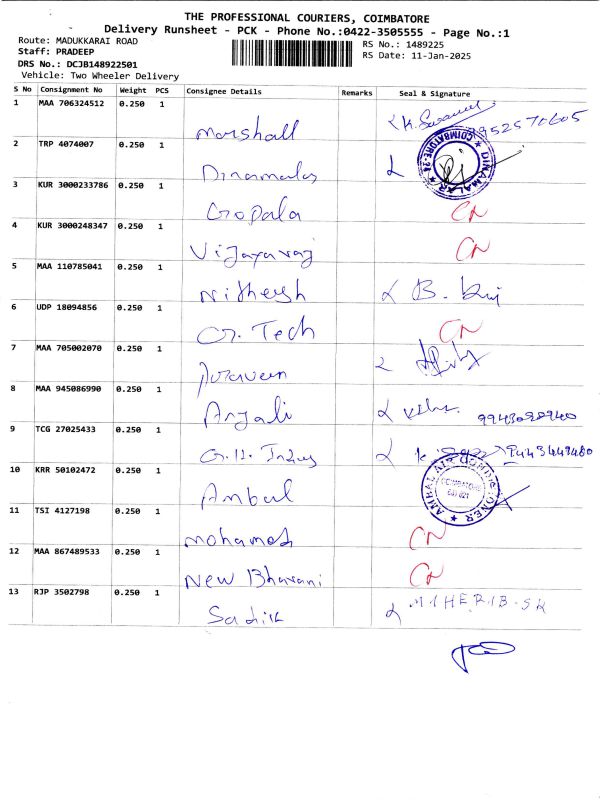 THE PROFESSIONAL COURIERS, COIMBATORE
Delivery Runsheet - PCK - Phone No.:0422-3505555 - Page No.:1
Route: MADUKKARAI ROAD
Staff: PRADEEP
DRS No.: DCJB148922501
Vehicle: Two Wheeler Delivery
RS No.: 1489225
RS Date: 11-Jan-2025
S No Consignment No Weight PCS Consignee Details Remarks Seal & Signature
1 MAA 706324512 0.250 1
Marshall
2 TRP 4074007 0.250 1
Dinamalar
COIMBATORE-24 DINAMALAR
3 KUR 3000233786 0.250 1
Gopala CN
4 KUR 3000248347 0.250 1
Vijayaraj CN
5 MAA 110785041 0.250 1
Nitheesh B.
6 UDP 18094856 0.250 1
G. Tech CN
7 MAA 705002070 0.250 1
Praveen
8 MAA 945086990 0.250 1
Anjali
9 TCG 27025433 0.250 1
G.H. 9443449480
10 KRR 50102472 0.250 1
Ambal
AMBAL AIR CONDITIONER COIMBATORE 641 021
11 TSI 4127198 0.250 1
Mohamed CN
12 MAA 867489533 0.250 1
New Bhavani CN
13 RJP 3502798 0.250 1
Sadik